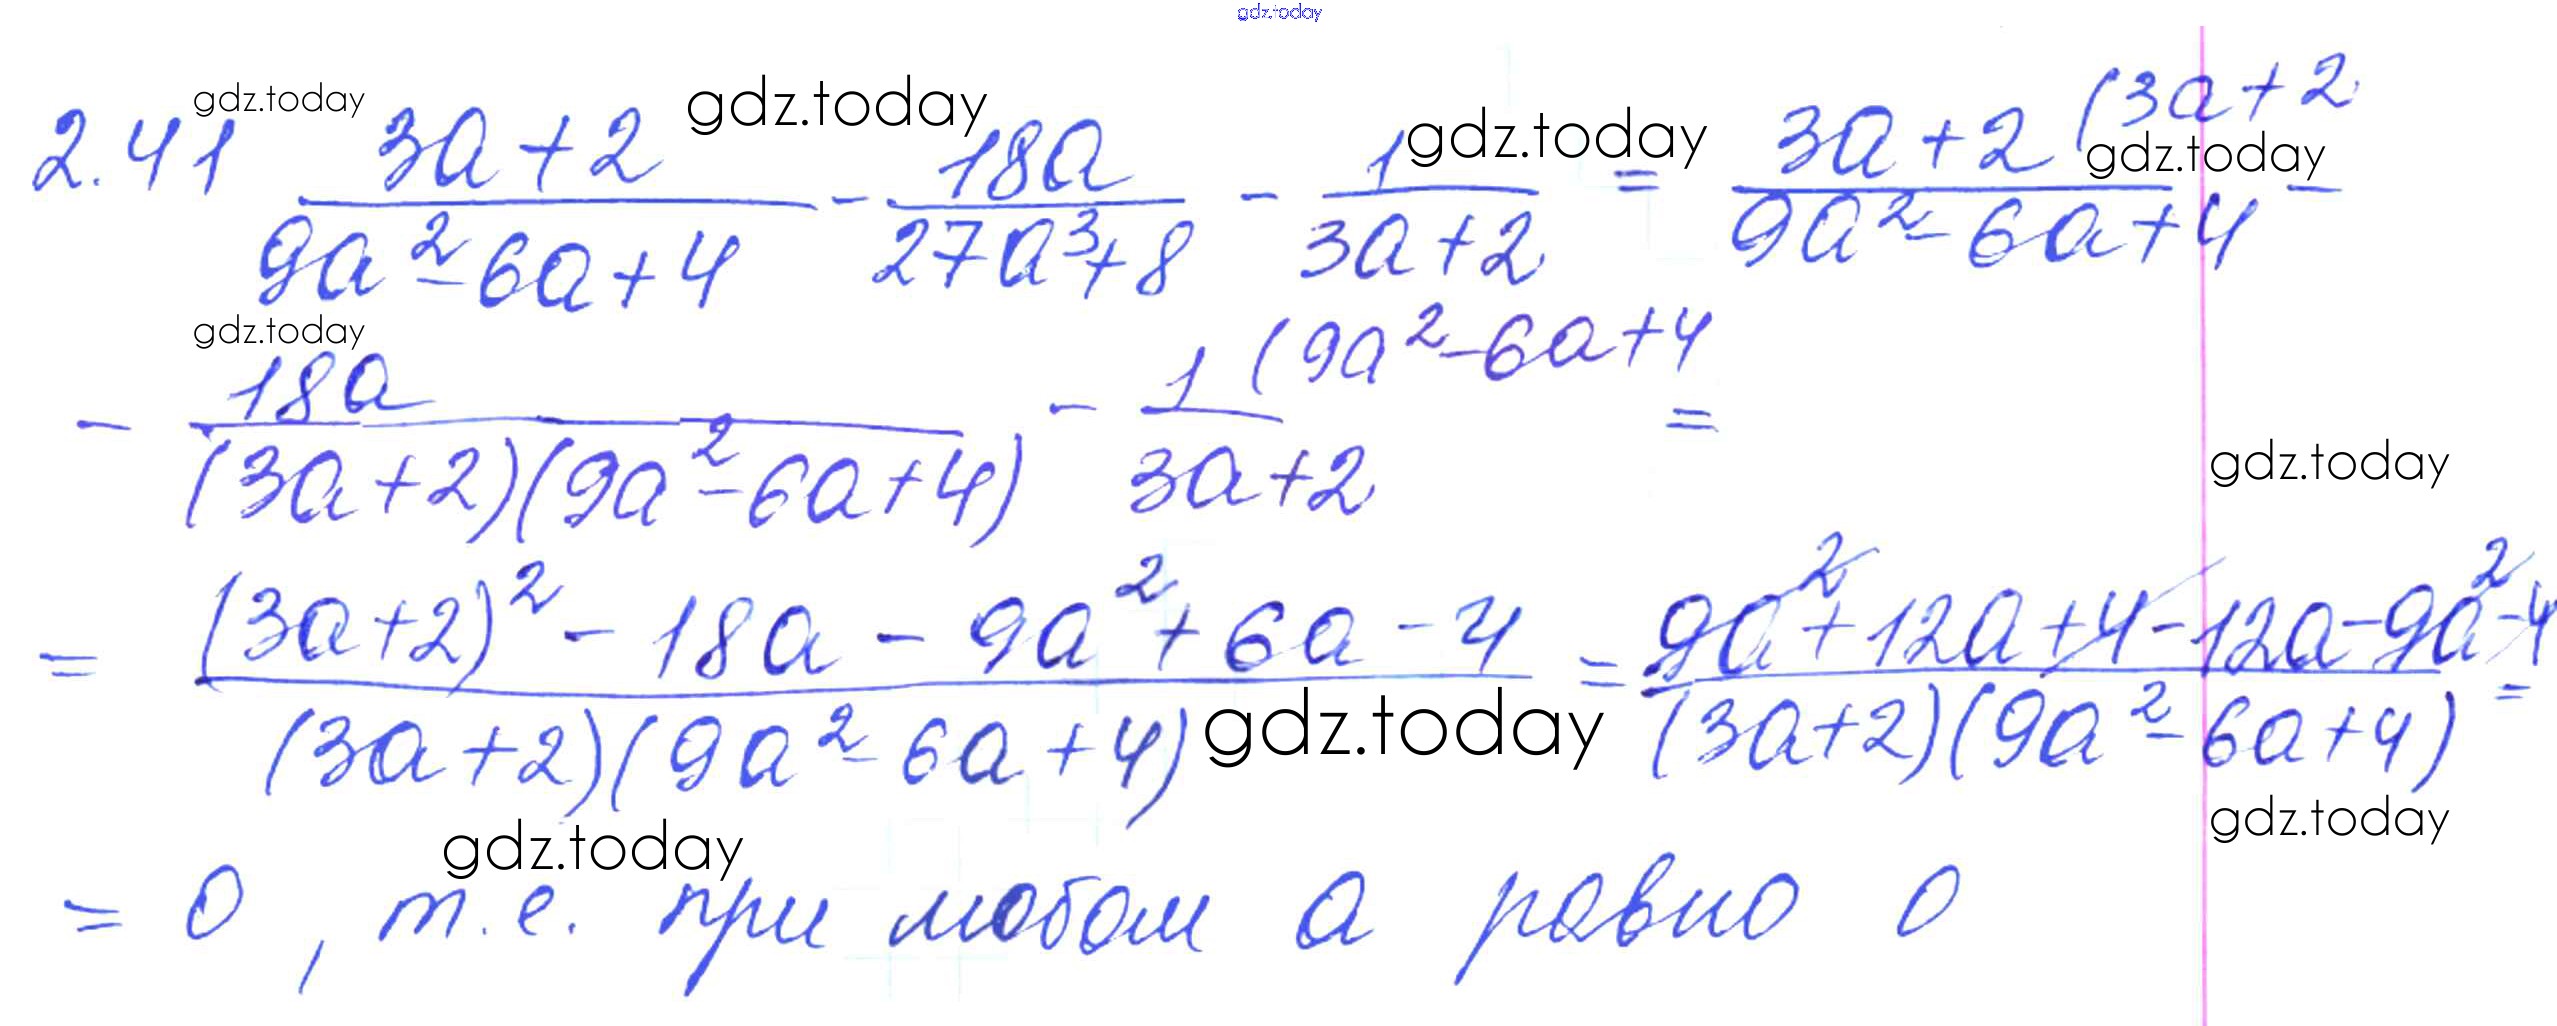 gdz.today
gdz.today gdz.today gdz.today gdz.today
2.41 \frac{3a+2}{9a^2-6a+4} - \frac{18a}{27a^3+8} - \frac{1}{3a+2} = \frac{3a+2 (3a+2}{9a^2-6a+4} -
gdz.today
- \frac{18a}{(3a+2)(9a^2-6a+4)} - \frac{1 (9a^2-6a+4}{3a+2} =
gdz.today
= \frac{(3a+2)^2 - 18a - 9a^2 + 6a - 4}{(3a+2)(9a^2-6a+4)} = \frac{9a^2+12a+4-12a-9a^2-4}{(3a+2)(9a^2-6a+4)} =
gdz.today
gdz.today gdz.today
= 0, т.е. при любом a равно 0